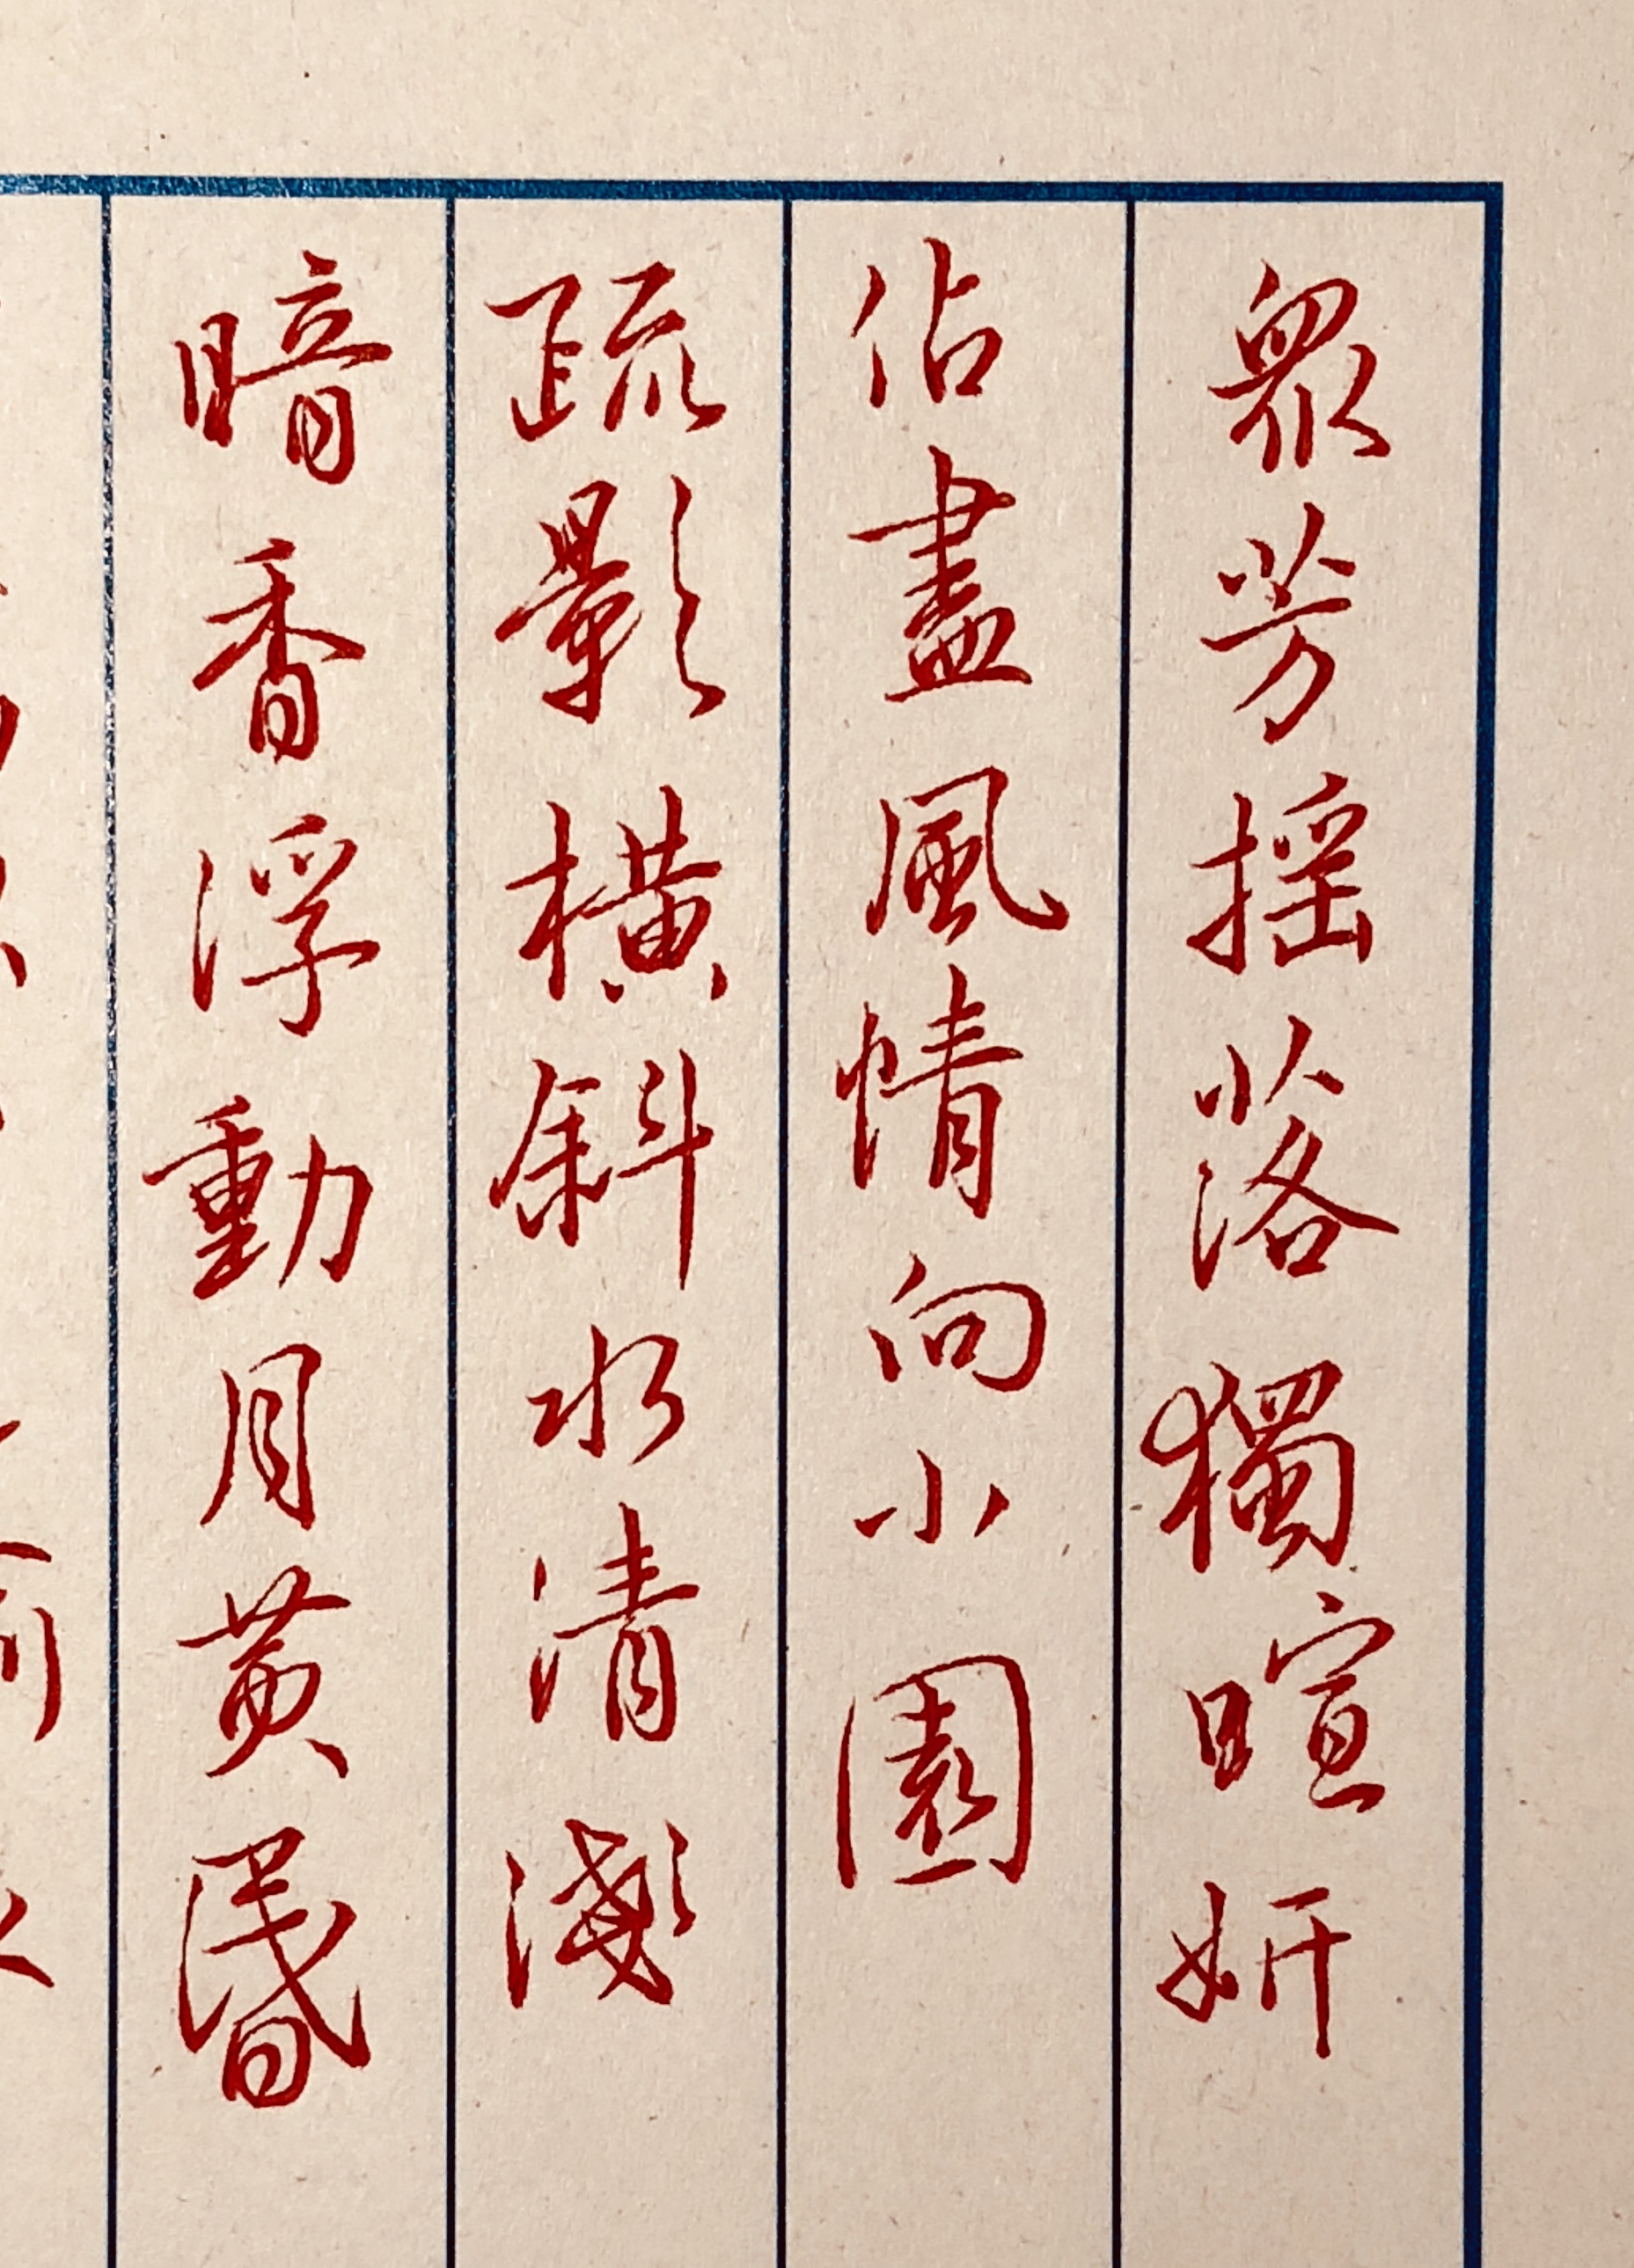 眾芳摇落獨暄妍
佔盡風情向小園
疏影橫斜水清淺
暗香浮動月黄昬